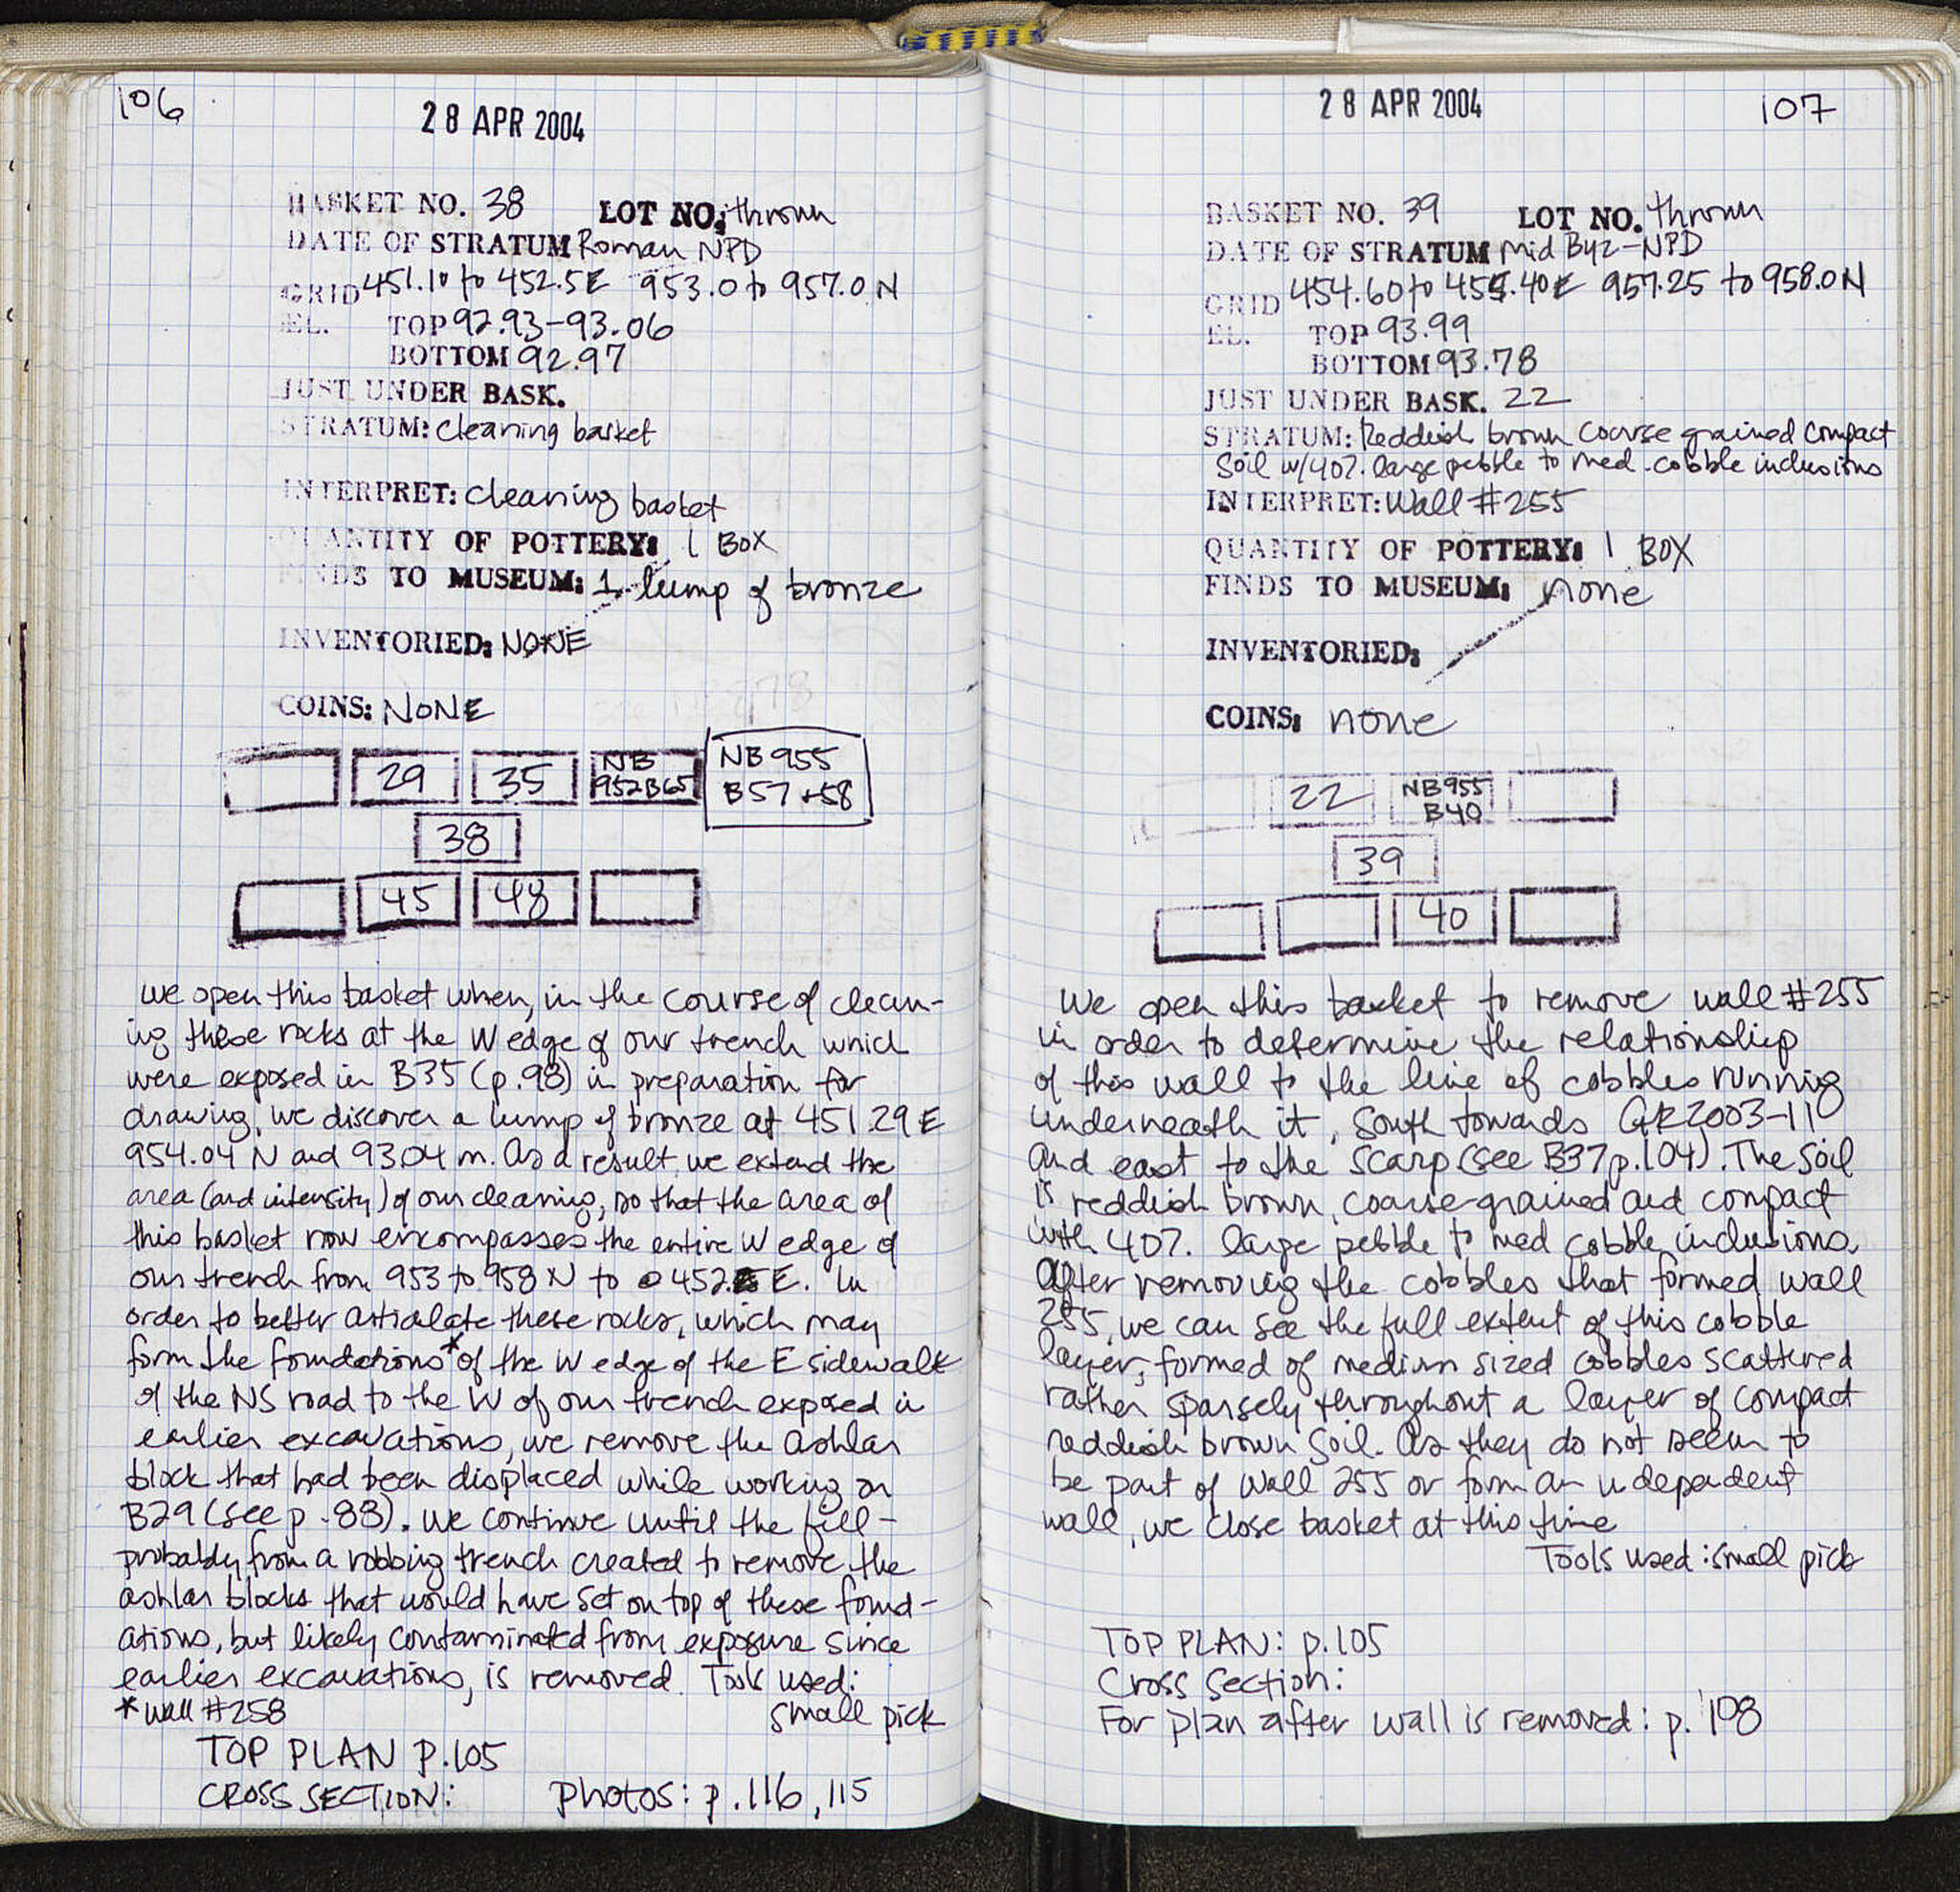 106
28 APR 2004
BASKET NO. 38 LOT NO: thrown
DATE OF STRATUM Roman NPD
GRID 451.10 to 452.5E 953.0 to 957.0 N
EL. TOP 92.93-93.06
BOTTOM 92.97
JUST UNDER BASK.
STRATUM: cleaning basket
INTERPRET: cleaning basket
QUANTITY OF POTTERY: 1 BOX
FINDS TO MUSEUM: 1 lump of bronze
INVENTORIED: NONE
COINS: NONE
29 35 NB 952 B65 NB 955 B57+58
38
45 48
we open this basket when, in the course of clean-
ing these rocks at the W edge of our trench which
were exposed in B35 (p.98) in preparation for
drawing, we discover a lump of bronze at 451.29 E
954.04 N and 93.04 m. As a result, we extend the
area (and intensity) of our cleaning, so that the area of
this basket now encompasses the entire W edge of
our trench from 953 to 958 N to 452.5 E. In
order to better articulate these rocks, which may
form the foundations* of the W edge of the E sidewalk
of the NS road to the W of our trench exposed in
earlier excavations, we remove the ashlar
block that had been displaced while working on
B29 (see p.88). We continue until the fill -
probably from a robbing trench created to remove the
ashlar blocks that would have set on top of these found-
ations, but likely contaminated from exposure since
earlier excavations, is removed. Tools used:
*Wall #258 small pick
TOP PLAN P.105
CROSS SECTION: Photos: p.116, 115
28 APR 2004 107
BASKET NO. 39 LOT NO. thrown
DATE OF STRATUM Mid Byz-NPD
GRID 454.60 to 455.40E 957.25 to 958.0N
EL. TOP 93.99
BOTTOM 93.78
JUST UNDER BASK. 22
STRATUM: Reddish brown coarse grained compact
soil w/40% large pebble to med. cobble inclusions
INTERPRET: Wall #255
QUANTITY OF POTTERY: 1 BOX
FINDS TO MUSEUM: none
INVENTORIED:
COINS: none
22 NB955 B40
39
40
We open this basket to remove wall #255
in order to determine the relationship
of this wall to the line of cobbles running
underneath it, south towards GR2003-11
and east to the scarp (see B37 p.104). The soil
is reddish brown, coarse-grained and compact
with 40% large pebble to med cobble inclusions.
After removing the cobbles that formed wall
255, we can see the full extent of this cobble
layer, formed of medium sized cobbles scattered
rather sparsely throughout a layer of compact
reddish brown soil. As they do not seem to
be part of wall 255 or form an independent
wall, we close basket at this time
Tools used: small pick
TOP PLAN: p.105
Cross Section:
For plan after wall is removed: p. 108